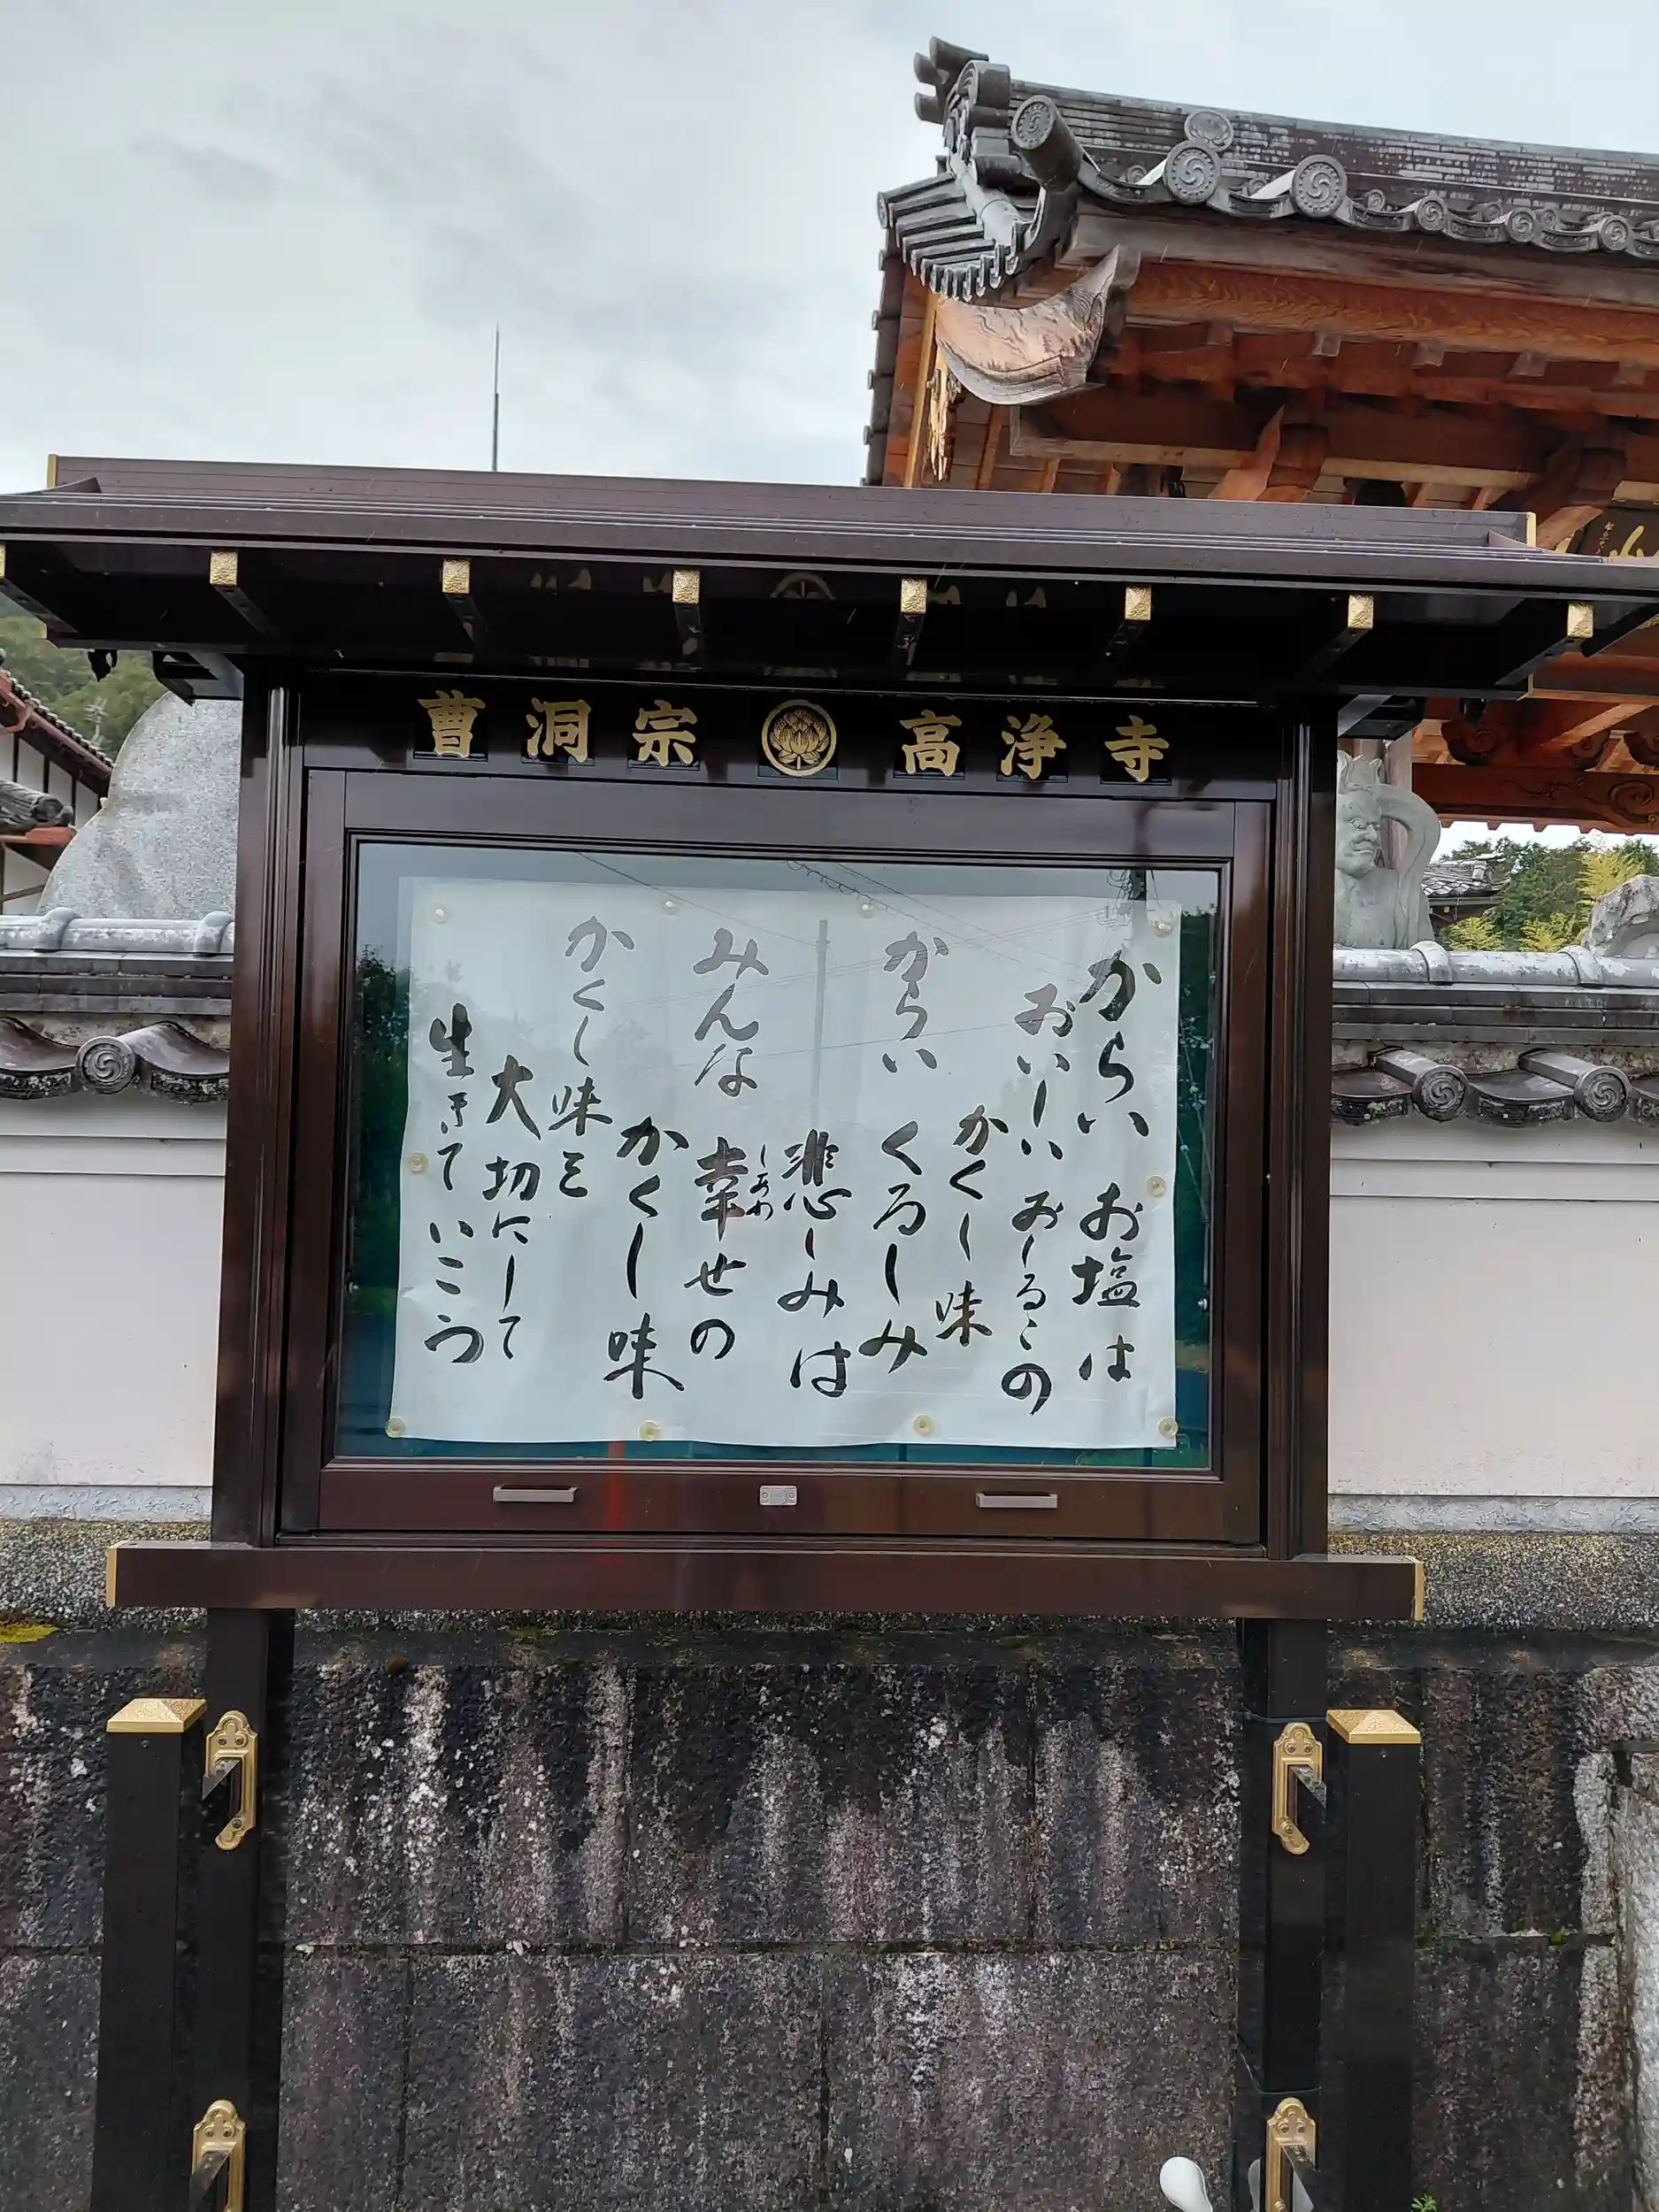 曹洞宗 高浄寺
からい お塩は
おいしい おしるこの
かくし味
からい くるしみ
悲しみは
みんな 幸せの
しあわ
かくし味
かくし味を
大切にして
生きていこう